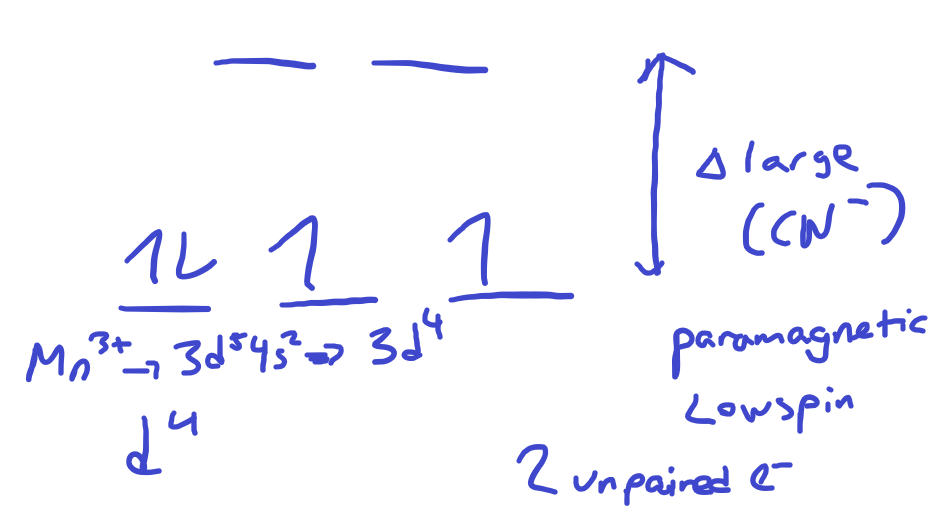 Δ large
(CN⁻)
1L 1 1
Mn³⁺ → 3d⁵4s² => 3d⁴
paramagnetic
d⁴
Lowspin
2 unpaired e⁻